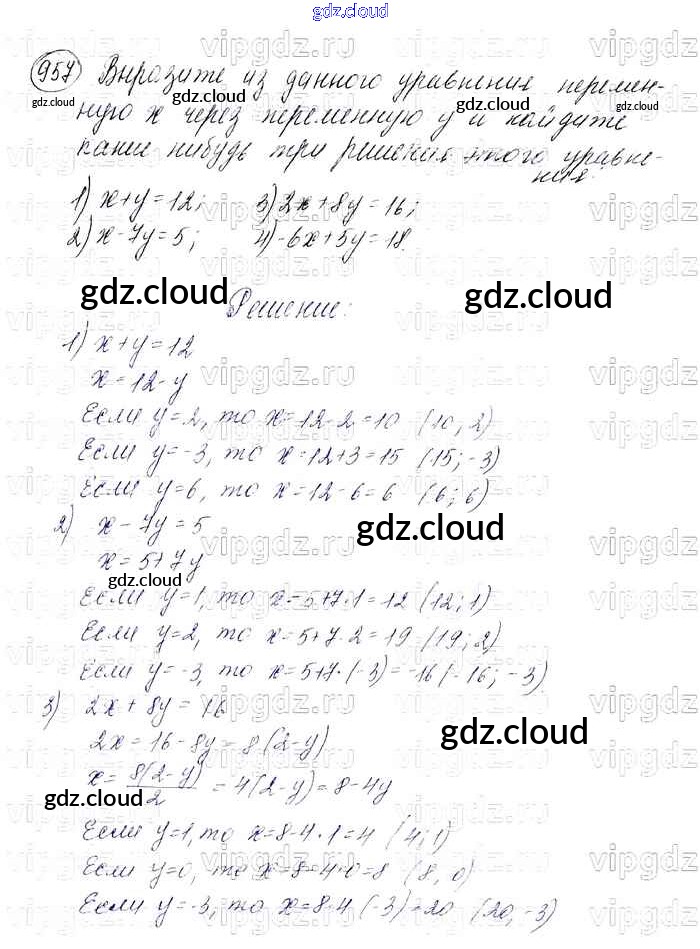 gdz.cloud
957) Выразите из данного уравнения перемен-
ную x через переменную y и найдите
какие нибудь три решения этого уравне-
ния:
1) x+y=12; 3) 2x+8y=16;
2) x-7y=5; 4) -6x+5y=18.
Решение:
1) x+y=12
x=12-y
Если y=2, то x=12-2=10 (10; 2)
Если y=-3, то x=12+3=15 (15; -3)
Если y=6, то x=12-6=6 (6; 6)
2) x-7y=5
x=5+7y
Если y=1, то x=5+7·1=12 (12; 1)
Если y=2, то x=5+7·2=19 (19; 2)
Если y=-3, то x=5+7·(-3)=-16 (-16; -3)
3) 2x+8y=16
2x=16-8y=8(2-y)
x=8(2-y)/2=4(2-y)=8-4y
Если y=1, то x=8-4·1=4 (4; 1)
Если y=0, то x=8-4·0=8 (8, 0)
Если y=-3, то x=8-4·(-3)=20 (20, -3)